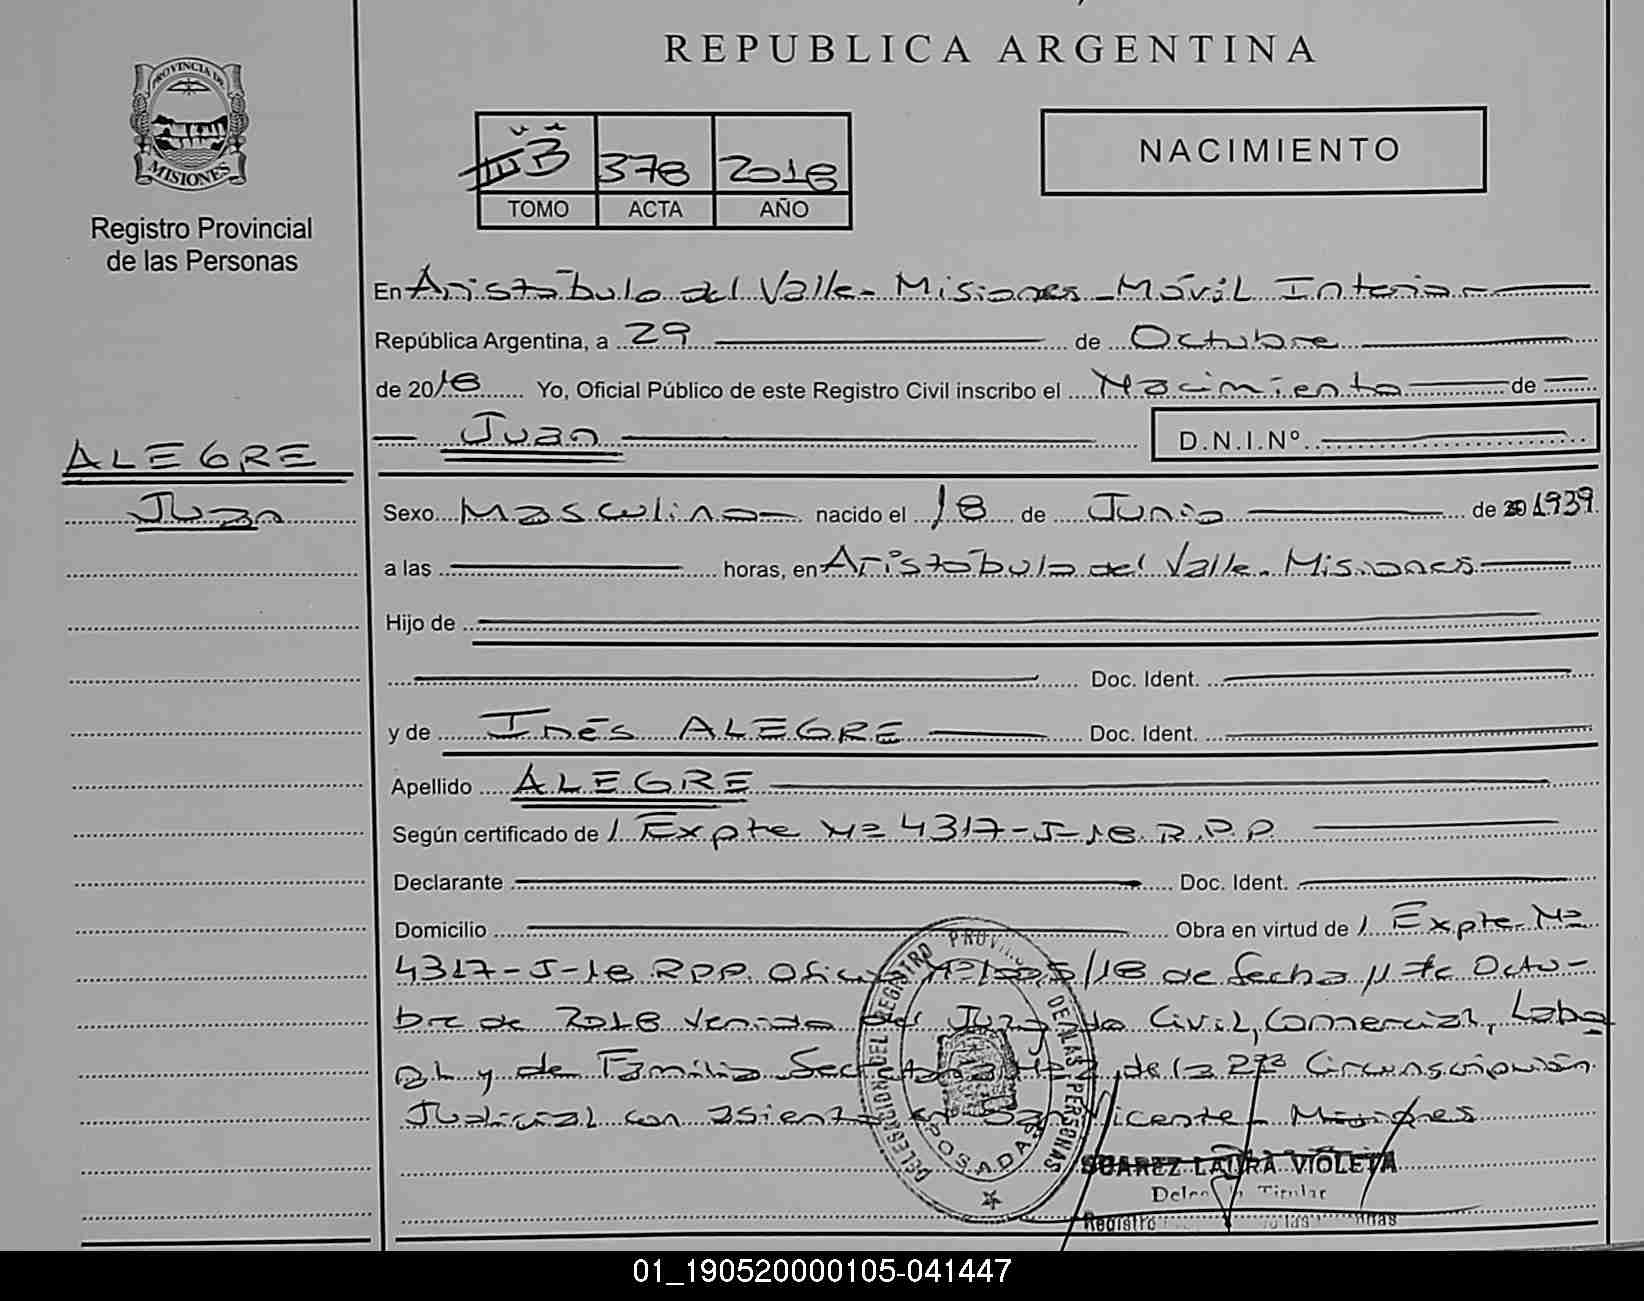 REPUBLICA ARGENTINA
PROVINCIA DE
MISIONES
Registro Provincial
de las Personas
III B 378 2018
TOMO ACTA AÑO
NACIMIENTO
En Aristóbulo del Valle - Misiones - Móvil Interior
República Argentina, a 29 de Octubre
de 2018 Yo, Oficial Público de este Registro Civil inscribo el Nacimiento de
Juan D.N.I.Nº
ALEGRE
Juan
Sexo Masculino nacido el 18 de Junio de 1939.
a las horas, en Aristóbulo del Valle - Misiones
Hijo de
Doc. Ident.
y de Inés ALEGRE Doc. Ident.
Apellido ALEGRE
Según certificado de / Expte Nº 4317-J-18 R.P.P.
Declarante Doc. Ident.
Domicilio Obra en virtud de / Expte. Nº
4317-J-18 RPP. Oficio /18 de fecha 11 de Octu-
bre de 2018 venido del Juzgado Civil, Comercial, Labo
ral y de Familia Secretaría de la 2da Circunscripción
Judicial con asiento en San Vicente - Misiones
DELEGACION DEL REGISTRO PROVINCIAL DE LAS PERSONAS
POSADAS
SUAREZ LAURA VIOLETA
Titular
Registro
01_190520000105-041447